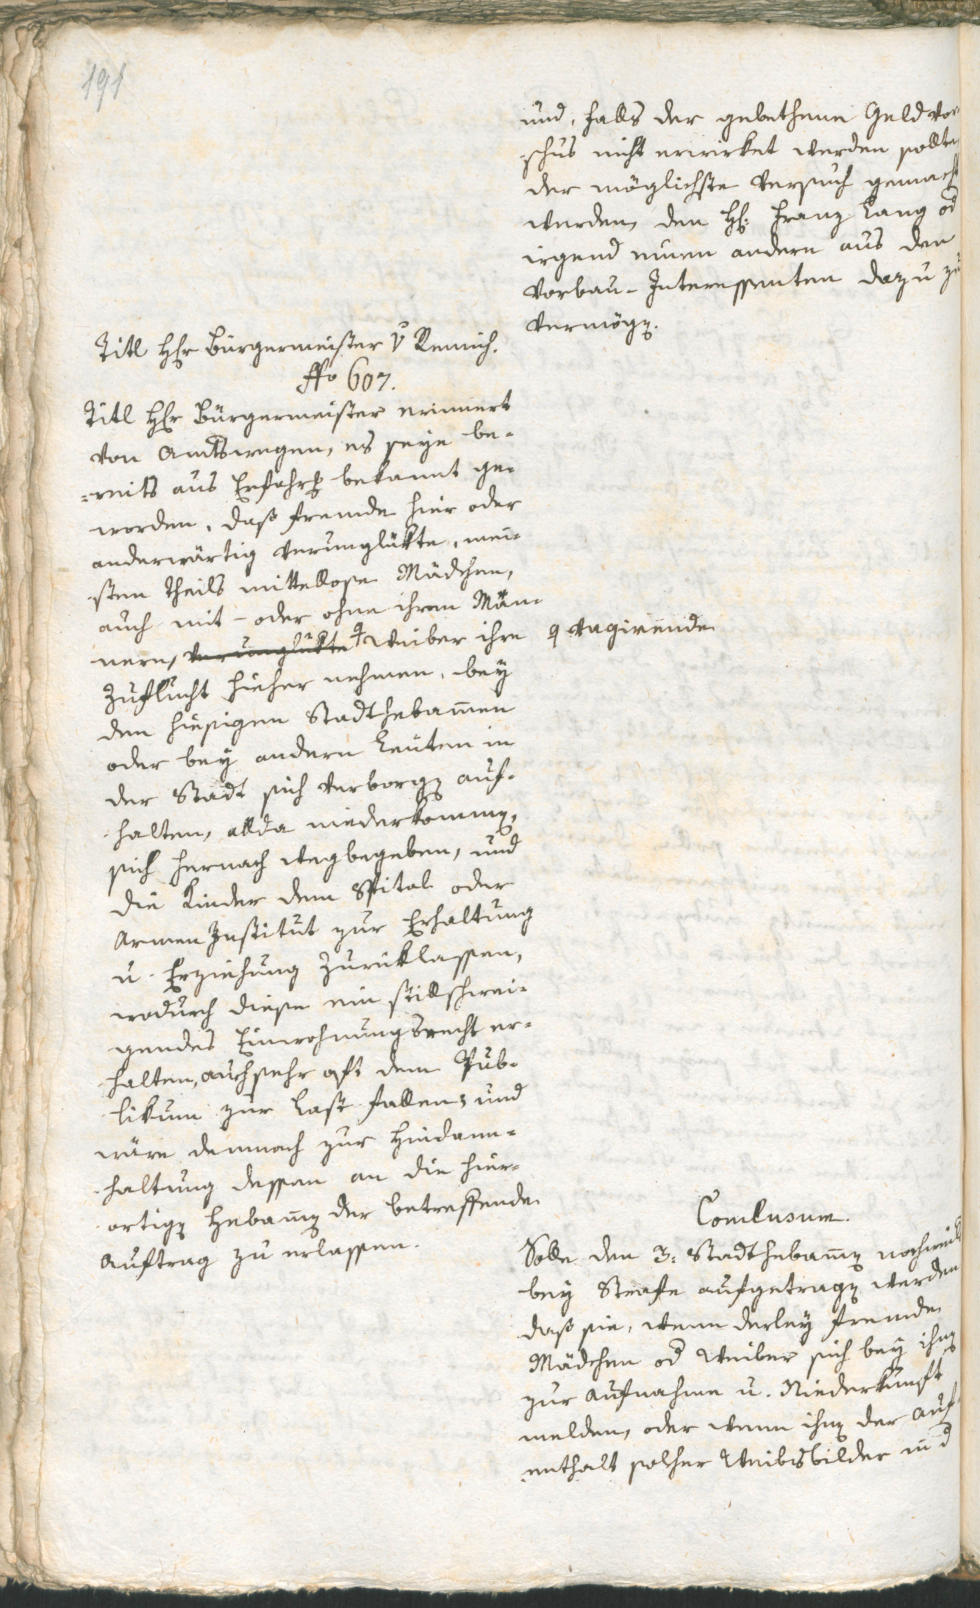 191
und, falls der gebethene Geldvor
schus nicht erwirket werden sollte
der möglichste Versuch gemacht
werden, den H: Franz Lang od
irgend einen andern aus den
Vorbau-Interessenten dazu zu
vermög.
Titl Hr Bürgermeister v Remich.
No 607.
Titl Hr Bürgermeister erinnert
von Amtswegen, es seye be-
=reits aus Erfahrg bekannt ge-
worden, daß fremde hier oder
anderwärtig verunglükte, mei-
sten theils mittellose Mädchen,
auch mit- oder ohne ihren Män-
nern, verunglükte Weiber ihre
vagirende
Zuflucht hieher nehmen, bey
den hiesigen Stadthebamen
oder bey andern Leuten in
der Stadt sich verborg auf-
halten, allda niederkomm,
sich hernach wegbegeben, und
die Kinder dem Spital oder
Armen Institut zur Erhaltung
u. Erziehung zurüklassen,
wodurch diese ein stillschwei-
gendes Einwohnungsrecht er-
halten, auch sehr oft dem Pub-
likum zur Last fallen; und
wäre demnach zur Hindann-
haltung dessen an die hier-
ortig Hebam der betreffende
Auftrag zu erlassen.
Conclusum.
Solle den 3: Stadthebam nochweils
bey Strafe aufgetrag werden
daß sie, wenn derley fremde
Mädchen od Weiber sich bey ihn
zur Aufnahme u. Niederkunft
melden, oder wenn ihn der Auf
enthalt solcher Weibsbilder in d